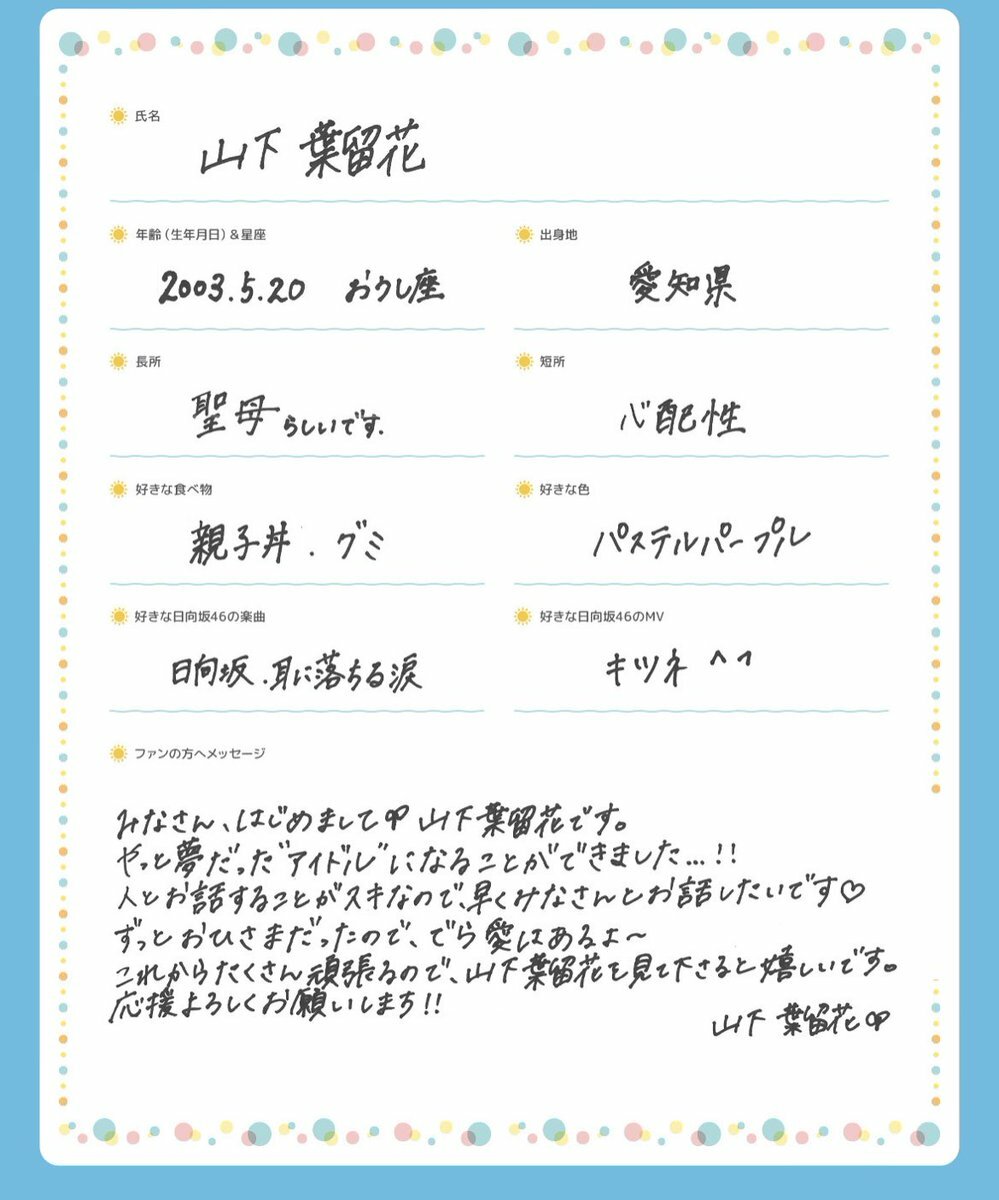 氏名
山下 葉留花
年齢（生年月日）＆星座
2003.5.20 おうし座
出身地
愛知県
長所
聖母らしいです.
短所
心配性
好きな食べ物
親子丼.グミ
好きな色
パステルパープル
好きな日向坂46の楽曲
日向坂.耳に落ちる涙
好きな日向坂46のMV
キツネ ^^
ファンの方へメッセージ
みなさん、はじめまして 山下葉留花です。
やっと夢だった"アイドル"になることができました...!!
人とお話することがスキなので、早くみなさんとお話したいです♡
ずっとおひさまだったので、でら愛はあるよ〜
これからたくさん頑張るので、山下葉留花を見て下さると嬉しいです。
応援よろしくお願いします!!
山下 葉留花